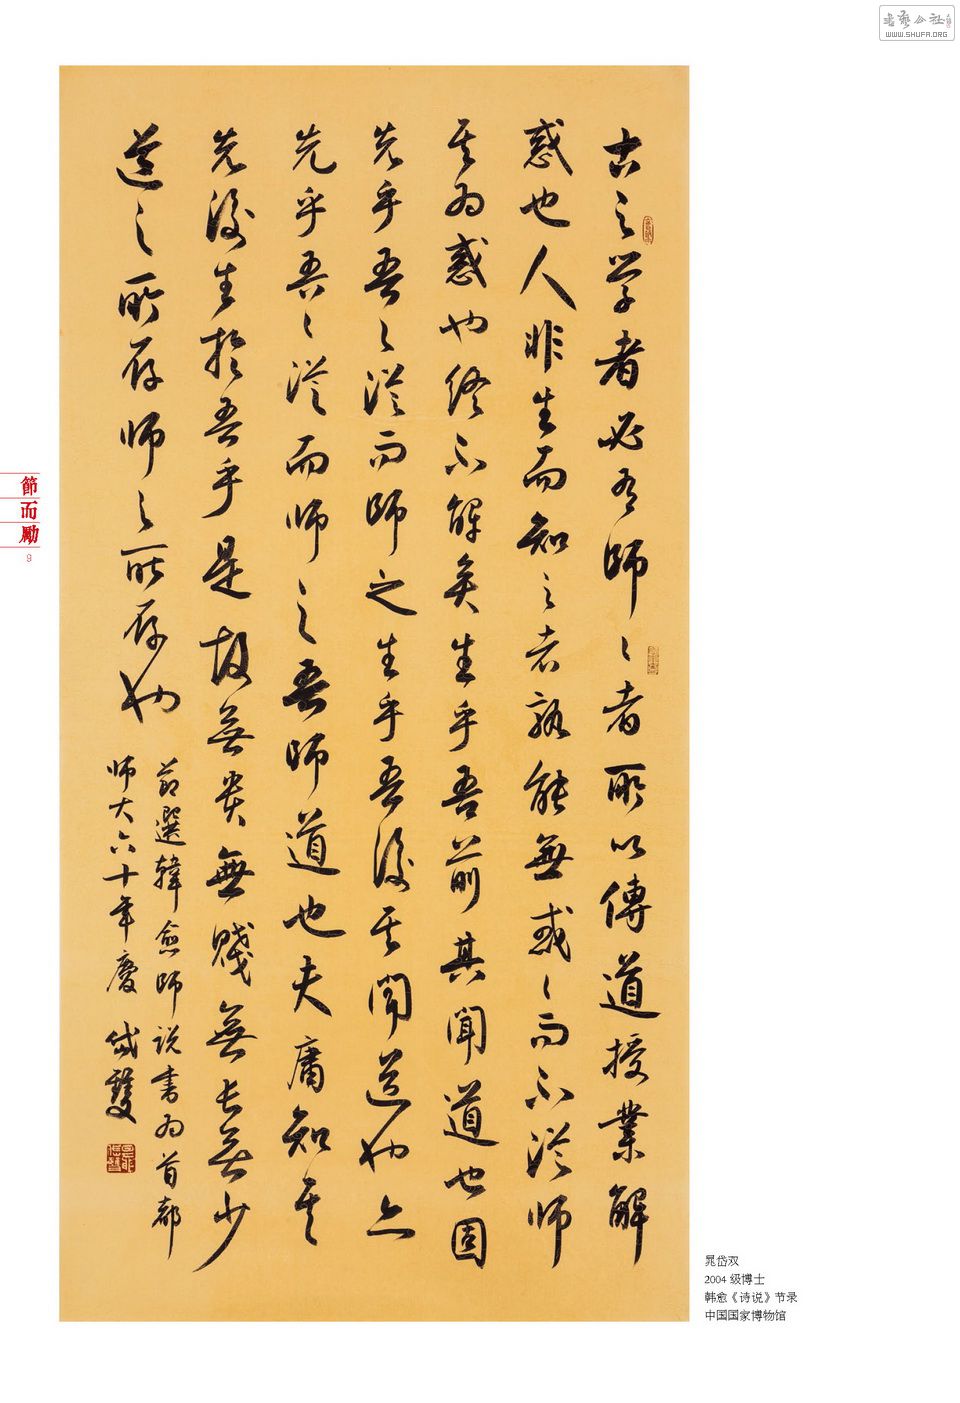 書藝公社
WWW.SHUFA.ORG
古之学者必有師〻者所以傳道授業解
惑也人非生而知之者孰能無或〻而不從师
其为惑也终不解矣生乎吾前其聞道也固
先乎吾〻從而師之生乎吾後其聞道也亦
先乎吾〻從而师之吾師道也夫庸知其
先後生於吾乎是故無贵無賤無长無少
道之所存师之所存也
节選韓愈師说书为首都
师大六十年慶 岱雙
節而勵
9
晁岱双
2004 级博士
韩愈《诗说》节录
中国国家博物馆